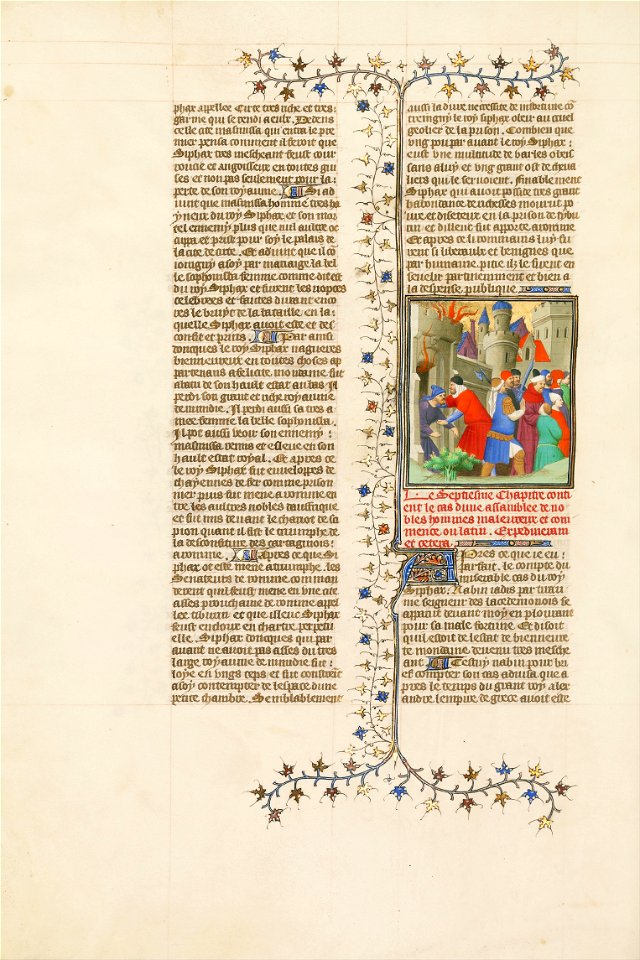 phax appellee Cirte tres riche et tres:
garnie qui se rendi a eulx. Dedens
celle cite masinissa qui entra le pre
mier pensa comment il feroit que
Siphax tres meschant feust cour
roucie et angoisseux en toutes gui
ses et non pas seulement pour la:
perte de son royaume. Si ad
vint que masinissa homme tres ha
yneux du roy Siphax et son mor
tel ennemy plus que nul aultre oc
cupa et prist pour soy le palais de
la cite de cirte. Et advint que il co
ioingny a soy par mariage la bel
le sophonissa femme comme dit est
du roy Siphax et furent les nopces
celebrees et faictes durant enco
res le bruyt de la bataille en la:
quelle Siphax avoit este et des
confit et prins. Par ainsi
doncques le roy Siphax nagueres
bieneureux en toutes choses ap
partenans a felicite mondaine fut
abatu de son hault estat au bas. Il
perdi son grant et riche royaume
de numidie. Il perdi aussi sa tres a
mee femme la belle sophonissa.
Il pot aussi veoir son ennemy:
masinissa remis et esleve en son
hault estat royal. Et apres ce
le roy Siphax fut envelopes de
chayennes de fer comme prison
nier puis fut mene a romme en
tre les aultres nobles daufrique
et fut mis devant le chariot de sci
pion quant il fist le triumphe de
la desconfiture des cartaginois:
a romme. Apres ce que Si
phax ot este mene a triumphe. les
Senateurs de romme comman
derent quil feust mene en une cite
asses prouchaine de romme appel
lee tiburn et que illeuc Siphax
feust enclour en chartre perpetu
elle. Siphax doncques qui par
avant ne avoit pas asses du tres
large royaume de numidie fut:
loye en ungs ceps et fut constraint
a soy contempter de lespace dune
petite chambre. Semblablement
aussi la dure necessite de infortune co
treingny le roy siphax obeir au cruel
geolier de la prison. Combien que
ung pou par avant le roy Siphax:
eust une multitude de barles obeis
sans a luy et ung grant ost de cheva
liers qui le servoient. finablement
Siphax qui avoit posside tres grant
habondance de richesses mourut po
vre et diseteux en la prison de tybur
tin et dillec fut apporte a romme
Et apres ce li rommains luy fu
rent si liberaulx et benignes que
par humaine pitie ilz le firent en
sevelir patriciennement et bien a
la despense publique.
Le Septiesme Chapitre conti
ent le cas dune assamblee de no
bles hommes maleureux et com
mence ou latin. Expedieram
et cetera.
Apres ce que ie eu:
parfait. le compte du
miserable cas du roy
Siphax. Nabin iades par tiran
nie seigneur des lacedemonois se
apparut devant moy en plourant
pour sa male fortune. Et disoit
quil estoit de lestat de bieneure
te mondaine devenu tres mesche
ant. Cestuy nabin pour bri
ef compter son cas advisa que a
pres le temps du grant roy alex
andre lempire de grece avoit este